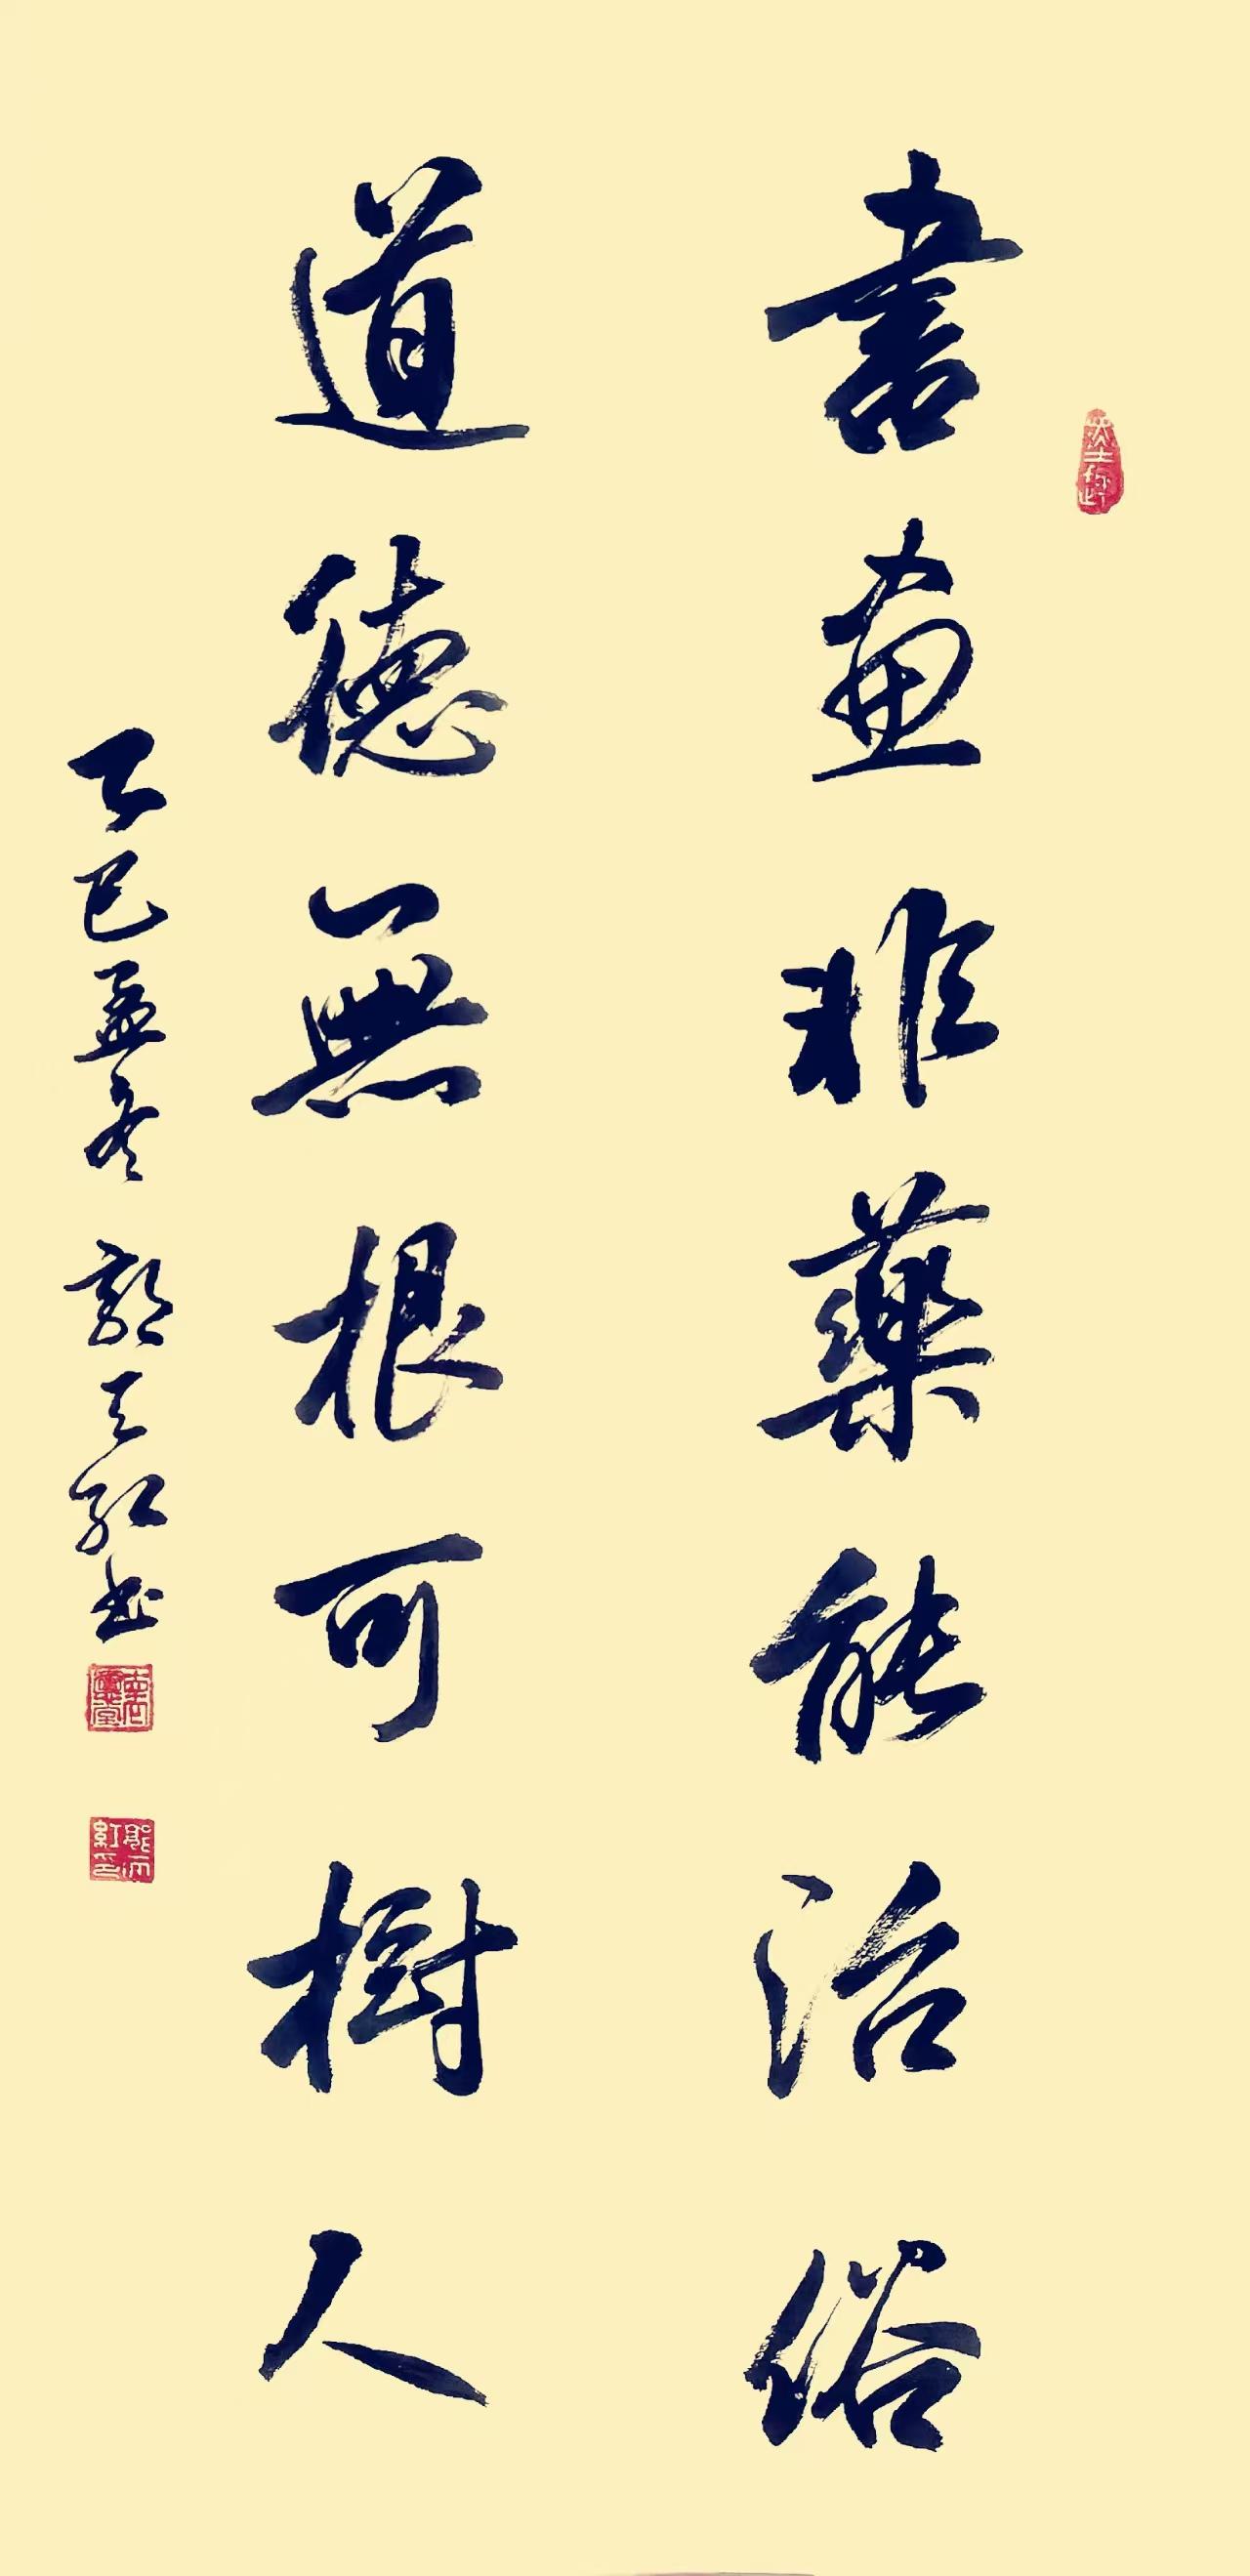 書畫非藥能治俗
道德無根可樹人
乙巳孟冬 郭天紅书